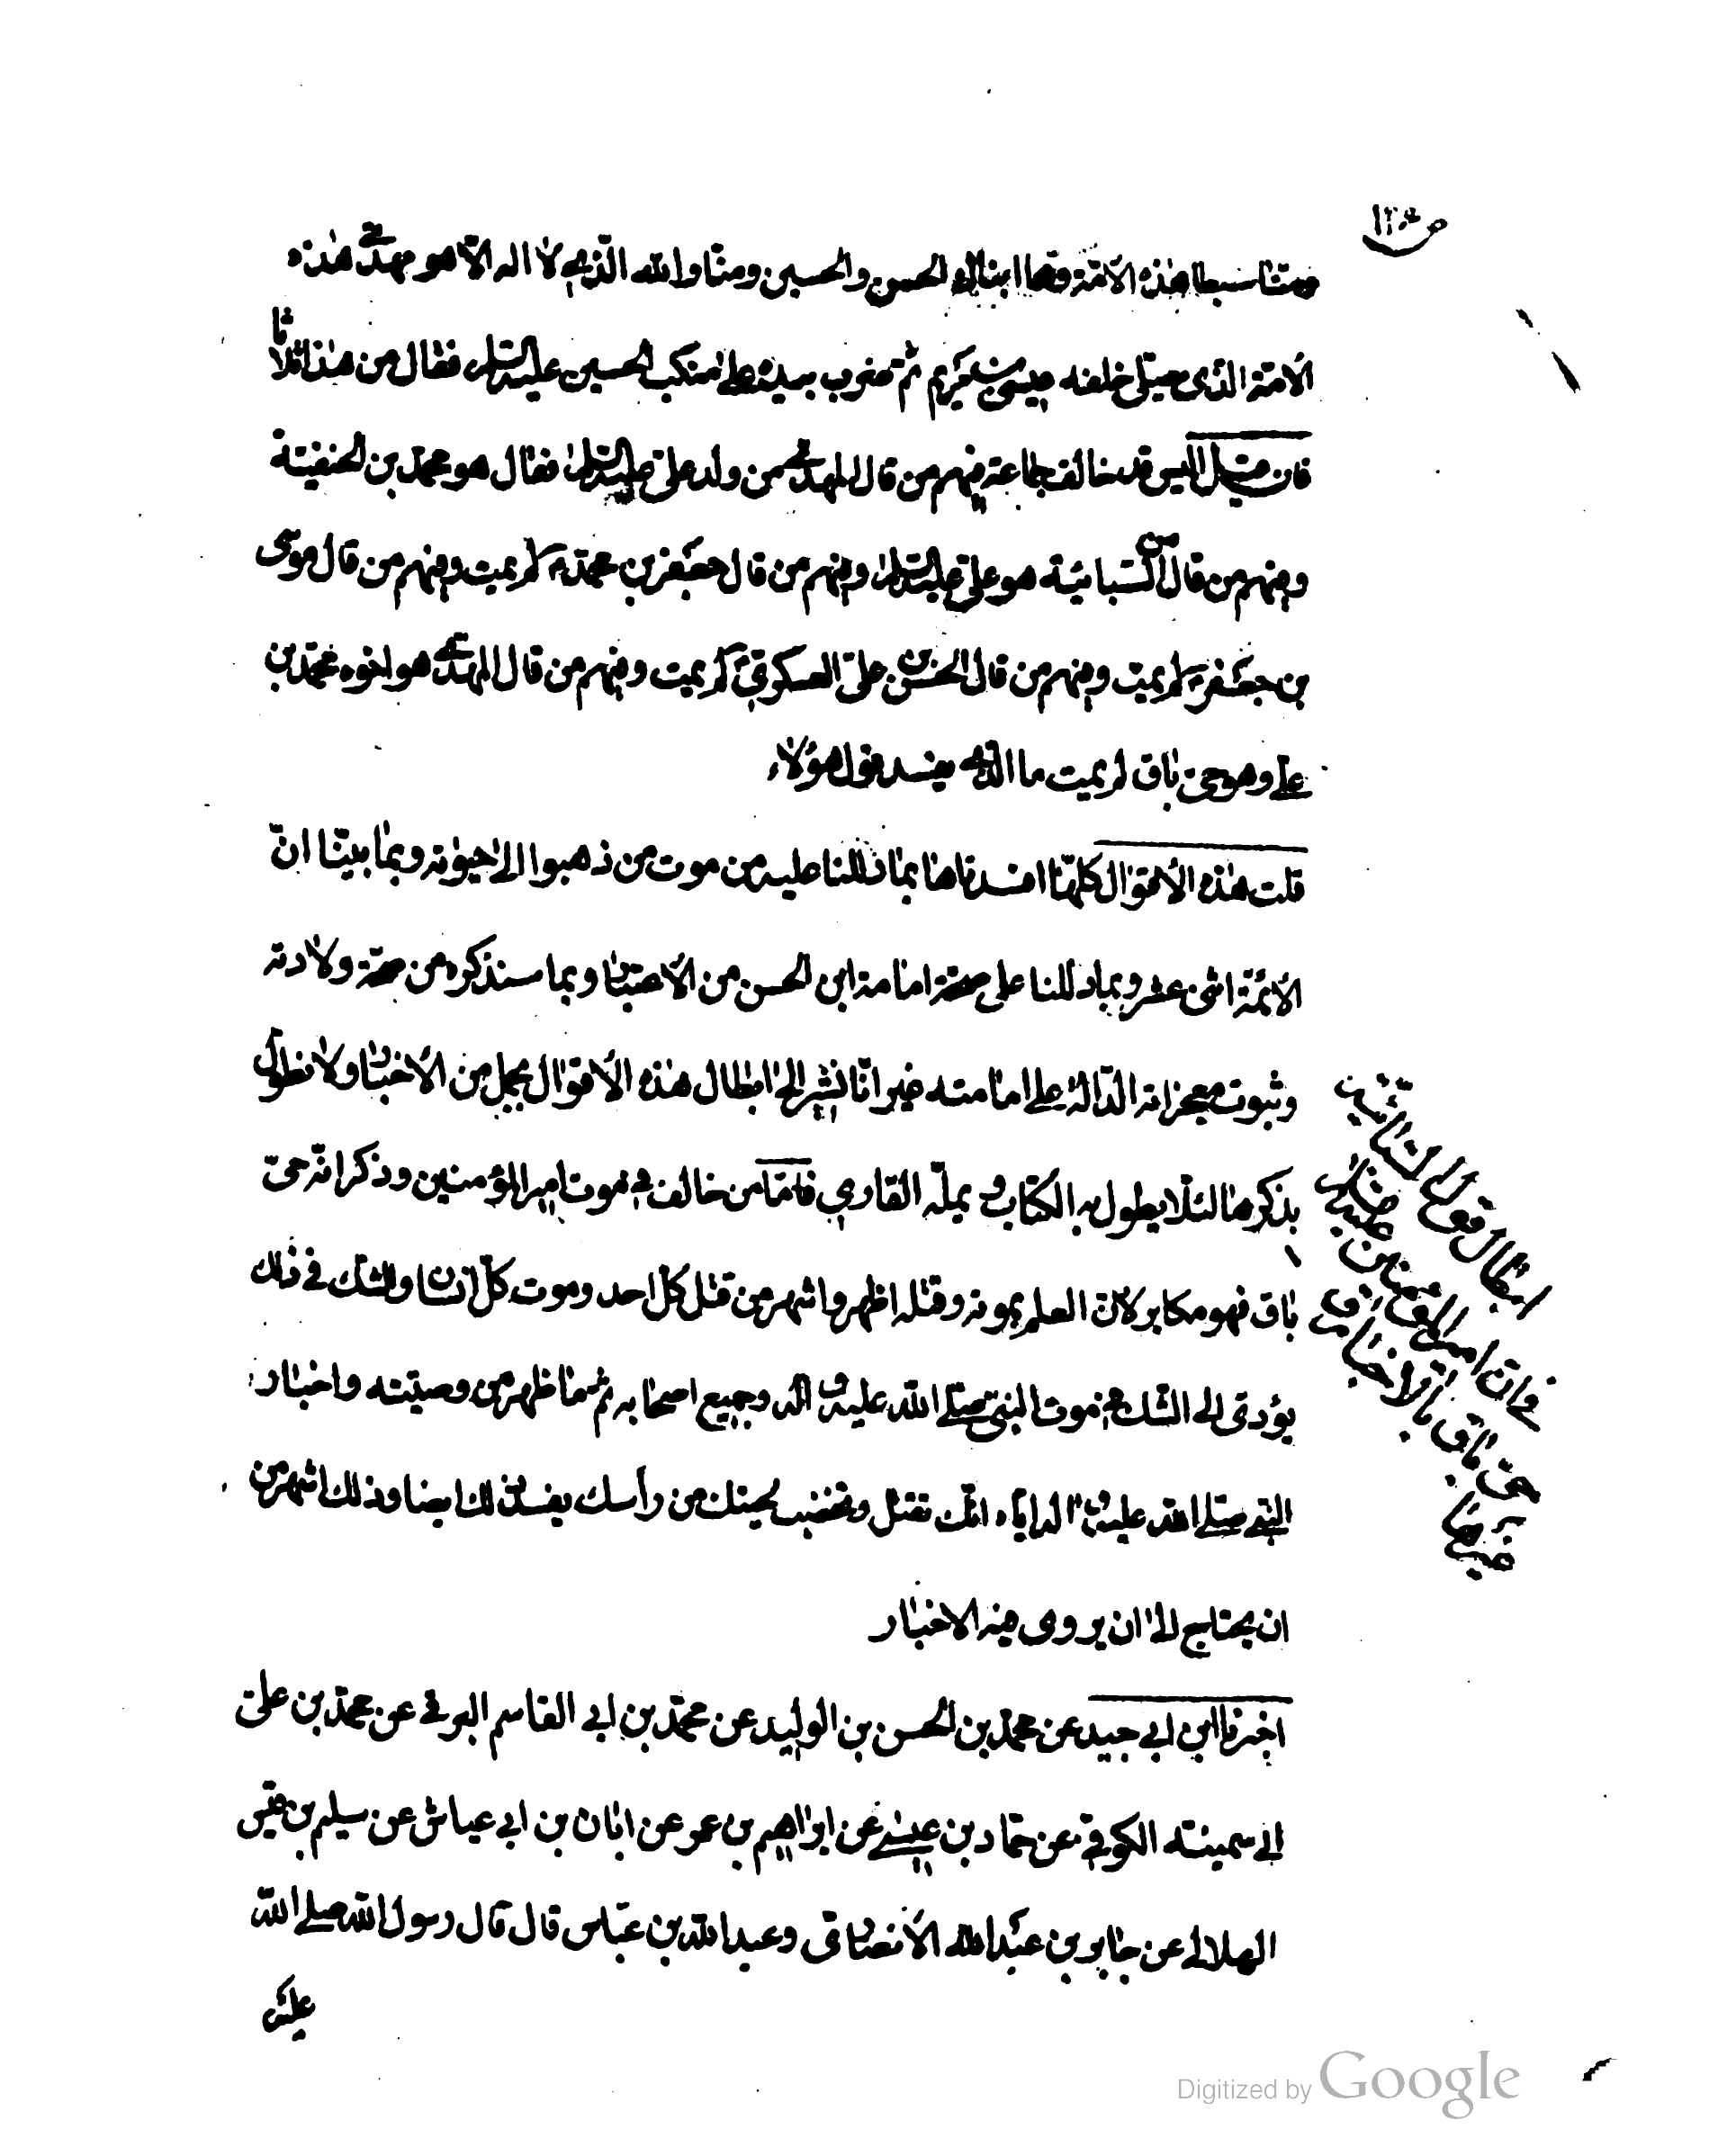 ومنا سبطا هذه الأمة وهما ابناك الحسن والحسين ومنا والله الذي لا اله الا هو مهدي هذه
الأمة الذي يصلي خلفه عيسى بن مريم ثم ضرب بيده على منكب الحسين عليه السلم فقال من هذا ثلاثا
فان قيل اليس قد خالف جماعة فيهم من قال المهدي من ولد علي عليه السلم فقال هو محمد بن الحنفية
ومنهم من قال من السبائية هو علي عليه السلم ومنهم من قال جعفر بن محمد لم يمت ومنهم من قال موسى
بن جعفر لم يمت ومنهم من قال الحسن بن علي العسكري لم يمت ومنهم من قال المهدي هو اخوه محمد بن
علي وهو حي باق لم يمت ما الذي يفسد قول هؤلاء
قلت هذه الأقوال كلها افسدناها بما دللنا عليه من موت من ذهبوا الى حيوته وبما بينا ان
الأئمة اثنى عشر وبما دللنا على صحة امامة ابن الحسن من الأعتبار وبما سنذكره من صحة ولادته
وثبوت معجزاته الدالة على امامته غير انا نشير الى ابطال هذه الأقوال بجمل من الأخبار ولا نطول
بذكرها لئلا يطول به الكتاب و يمله القاري فاما من خالف في موت امير المؤمنين وذكر انه حي
باق فهو مكابر لان العلم بموته وقتله اظهر واشهر من قتل كل احد وموت كل انسان والشك في ذلك
يؤدى الى الشك في موت النبي صلى الله عليه و اله وجميع اصحابه ثم ما ظهر من وصيته واخبار
النبي صلى الله عليه و اله اياه انك تقتل وتخضب لحيتك من رأسك يفسد ذلك ايضا وذلك اشهر من
ان يحتاج الى ان يروى فيه الاخبار
اخبرنا ابن ابي جيد عن محمد بن الحسن بن الوليد عن محمد بن ابي القاسم البرقي عن محمد بن علي
ابي سمينه الكوفي عن حماد بن عيسى عن ابراهيم بن عمر عن ابان بن ابي عياش عن سليم بن قيس
الهلالي عن جابر بن عبد الله الأنصاري وعبد الله بن عباس قال قال رسول الله صلى الله
عليه
ابطال قول
حي باق بالاخبار
Digitized by Google